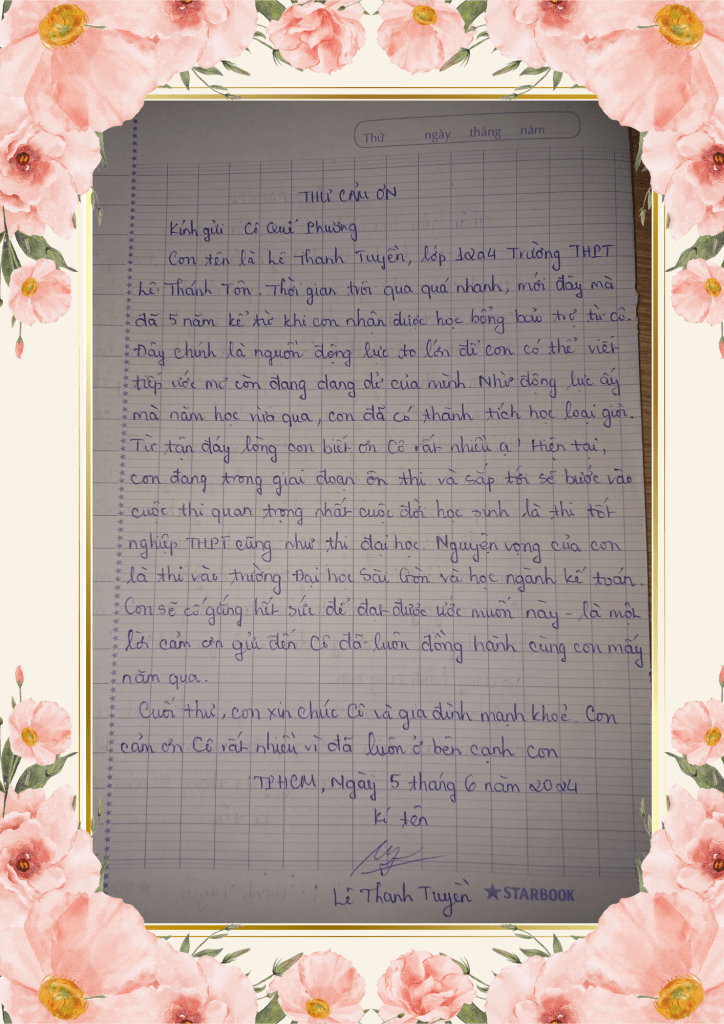 Thứ ngày tháng năm
THƯ CẢM ƠN
Kính gửi Cô Quế Phương
Con tên là Lê Thanh Tuyền, lớp 12a4 Trường THPT
Lê Thánh Tôn. Thời gian trôi qua quá nhanh, mới đây mà
đã 5 năm kể từ khi con nhận được học bổng bảo trợ từ cô.
Đây chính là nguồn động lực to lớn để con có thể viết
tiếp ước mơ còn đang dang dở của mình. Nhờ động lực ấy
mà năm học vừa qua, con đã có thành tích học loại giỏi.
Từ tận đáy lòng con biết ơn Cô rất nhiều ạ! Hiện tại,
con đang trong giai đoạn ôn thi và sắp tới sẽ bước vào
cuộc thi quan trọng nhất cuộc đời học sinh là thi tốt
nghiệp THPT cũng như thi đại học. Nguyện vọng của con
là thi vào trường Đại học Sài Gòn và học ngành kế toán.
Con sẽ cố gắng hết sức để đạt được ước muốn này - là một
lời cảm ơn gửi đến Cô đã luôn đồng hành cùng con mấy
năm qua.
Cuối thư, con xin chúc Cô và gia đình mạnh khoẻ. Con
cảm ơn Cô rất nhiều vì đã luôn ở bên cạnh con
TPHCM, Ngày 5 tháng 6 năm 2024
Kí tên
Lê Thanh Tuyền ★STARBOOK